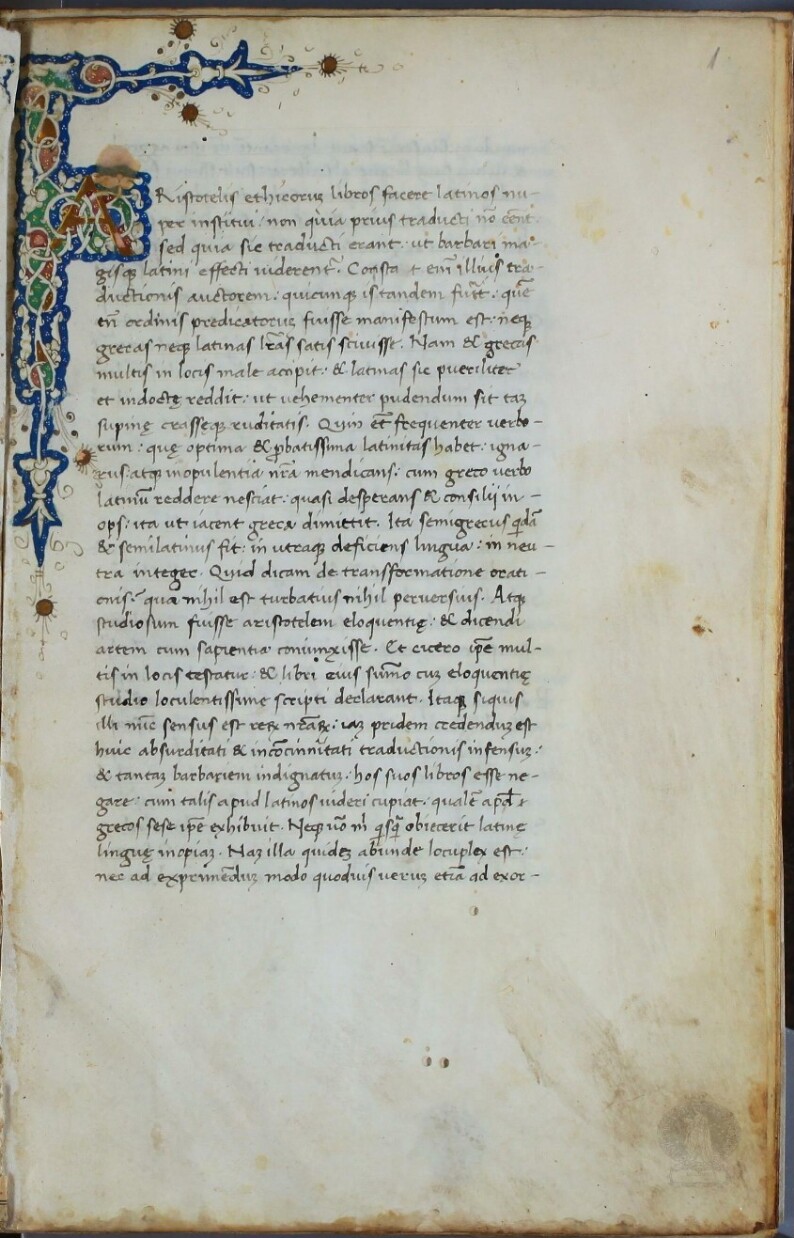 1
ARistotelis ethicoruȝ libros facere latinos nu-
per institui: non quia prius traducti nō eēnt.
sed quia sic traducti erant. ut barbari ma-
gisqȝ latini effecti uiderentᷣ. Constat eīn illius tra-
ductionis auctorem: quicunqȝ is tandem fuīt: quē
tn̄ ordinis predicatoruȝ fuisse manifestum est: neqȝ
grecas neqȝ latinas lr̄as satis sciuisse. Nam & grecis
multis in locis male accipit: & latinas sic pueriliter
et indoctę reddit: ut uehementer pudendum sit taȝ
supinę crassęqȝ ruditatis. Quin et̄ frequenter uerbo-
rum: quę optima & ꝓbatissima latinitas habet: igna-
rus: atqȝ in opulentia nr̄a mendicans: cum greco uerbo
latinū reddere nesciat: quasi desperans & consilij in-
ops: ita ut iacent greca dimittit. Ita semigrecus q̇dā
& semilatinus fit: in utraqȝ deficiens lingua: in neu-
tra integer. Quid dicam de transformatione orati-
onis? qua nihil est turbatius nihil peruersius. Atqȝ
studiosum fuisse aristotelem eloquentię: & dicendi
artem cum sapientia coniunxisse. Et cicero ip̄e mul-
tis in locis testatur: & libri eius sum̄o cuȝ eloquentię
studio loculentissime scripti declarant. Itaqȝ siquis
illi nūc sensus est reꝝ nr̄aꝝ: iaȝ pridem credenduȝ est
huic absurditati & inconcinnitati traductionis infensuȝ:
& tantaȝ barbariem indignatuȝ: hos suos libros esse ne-
gare: cum talis apud latinos uideri cupiat: qualē apd̄
grecos sese ip̄e exhibuit. Neqȝ uo̅ m̄ q̇sq̄ obiecerit latinę
linguę inopiaȝ. Naȝ illa quideȝ abunde locuplex est:
nec ad exprimēduȝ modo quoduis ueruȝ etiā ad exor-